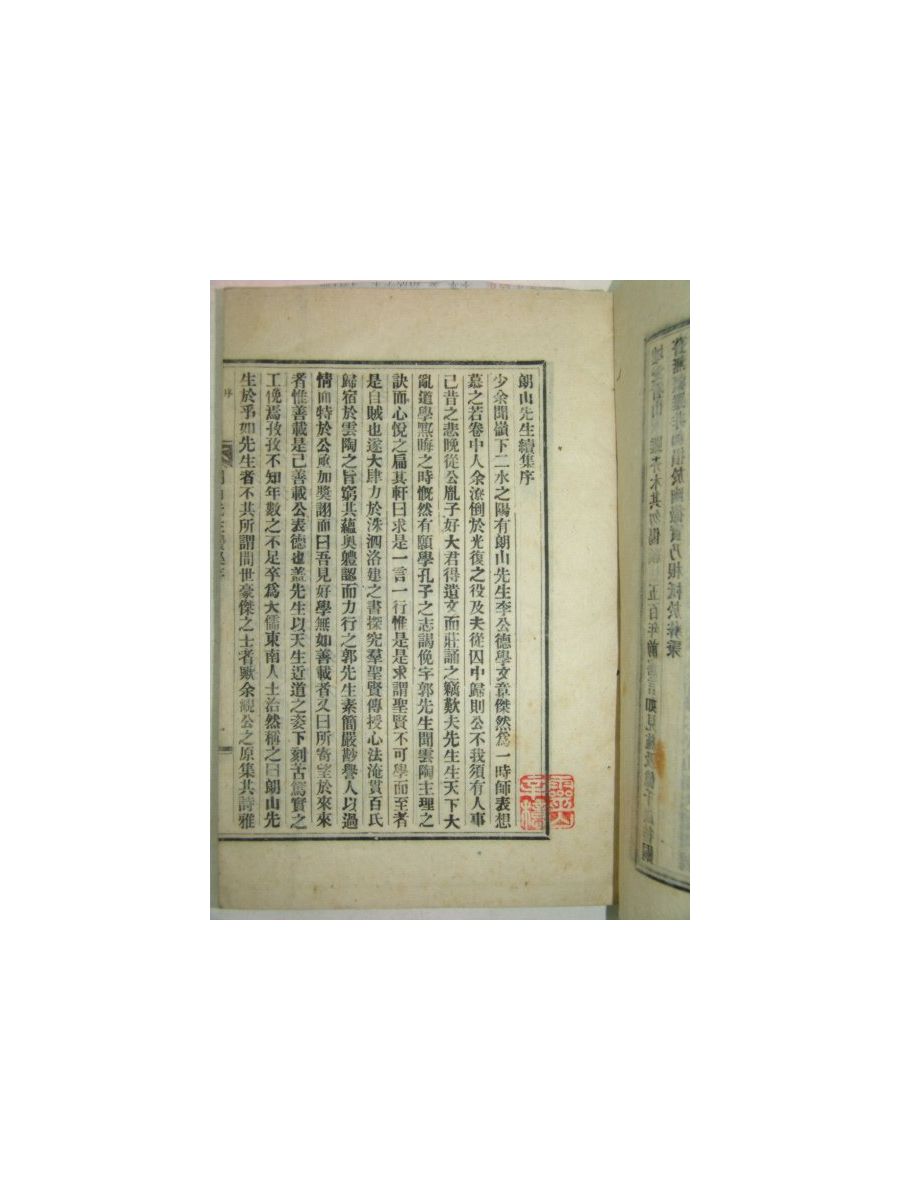 朗山先生續集序
少余聞嶺下二水之陽有朗山先生李公德學文章傑然爲一時師表想
慕之若卷中人余潦倒於光復之役及夫從囚中歸則公不我須有人事
已昔之悲晚從公胤子好大君得遺文而莊誦之竊歎夫先生生天下大
亂道學黑晦之時慨然有願學孔子之志謁俛宇郭先生聞雲陶主理之
訣而心悅之扁其軒曰求是一言一行惟是是求謂聖賢不可學而至者
是自賊也遂大肆力於洙泗洛建之書探究羣聖賢傳授心法淹貫百氏
歸宿於雲陶之旨窮其蘊奧軆認而力行之郭先生素簡嚴尠譽人以過
情而特於公亟加獎詡而曰吾見好學無如善載者又曰所寄望於來來
者惟善載是已善載公表德也盖先生以天生近道之姿下刻苦篤實之
工俛焉孜孜不知年數之不足卒爲大儒東南人士洽然稱之曰朗山先
生於乎如先生者不其所謂間世豪傑之士者歟余覩公之原集其詩雅
序